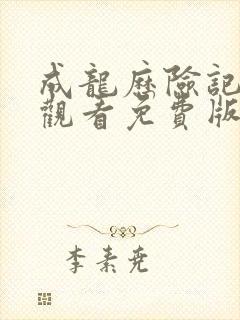 成龍歷險記
觀看免費版
李素堯